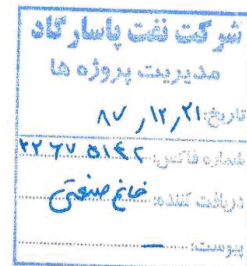 شرکت نفت پاسارگاد
مدیریت پروژه ها
تاریخ: ۸۷/۱۲/۲۱
شماره فاکس: ۲۲۶۷۵۱۴۲
دریافت کننده: خانم صنعتی
پیوست: —